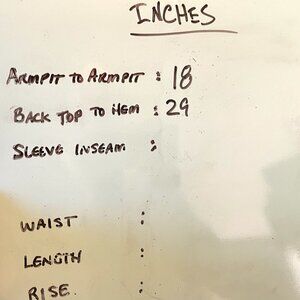 INCHES
ARMPIT TO ARMPIT : 18
BACK TOP TO HEM : 29
SLEEVE INSEAM :
WAIST :
LENGTH :
RISE :